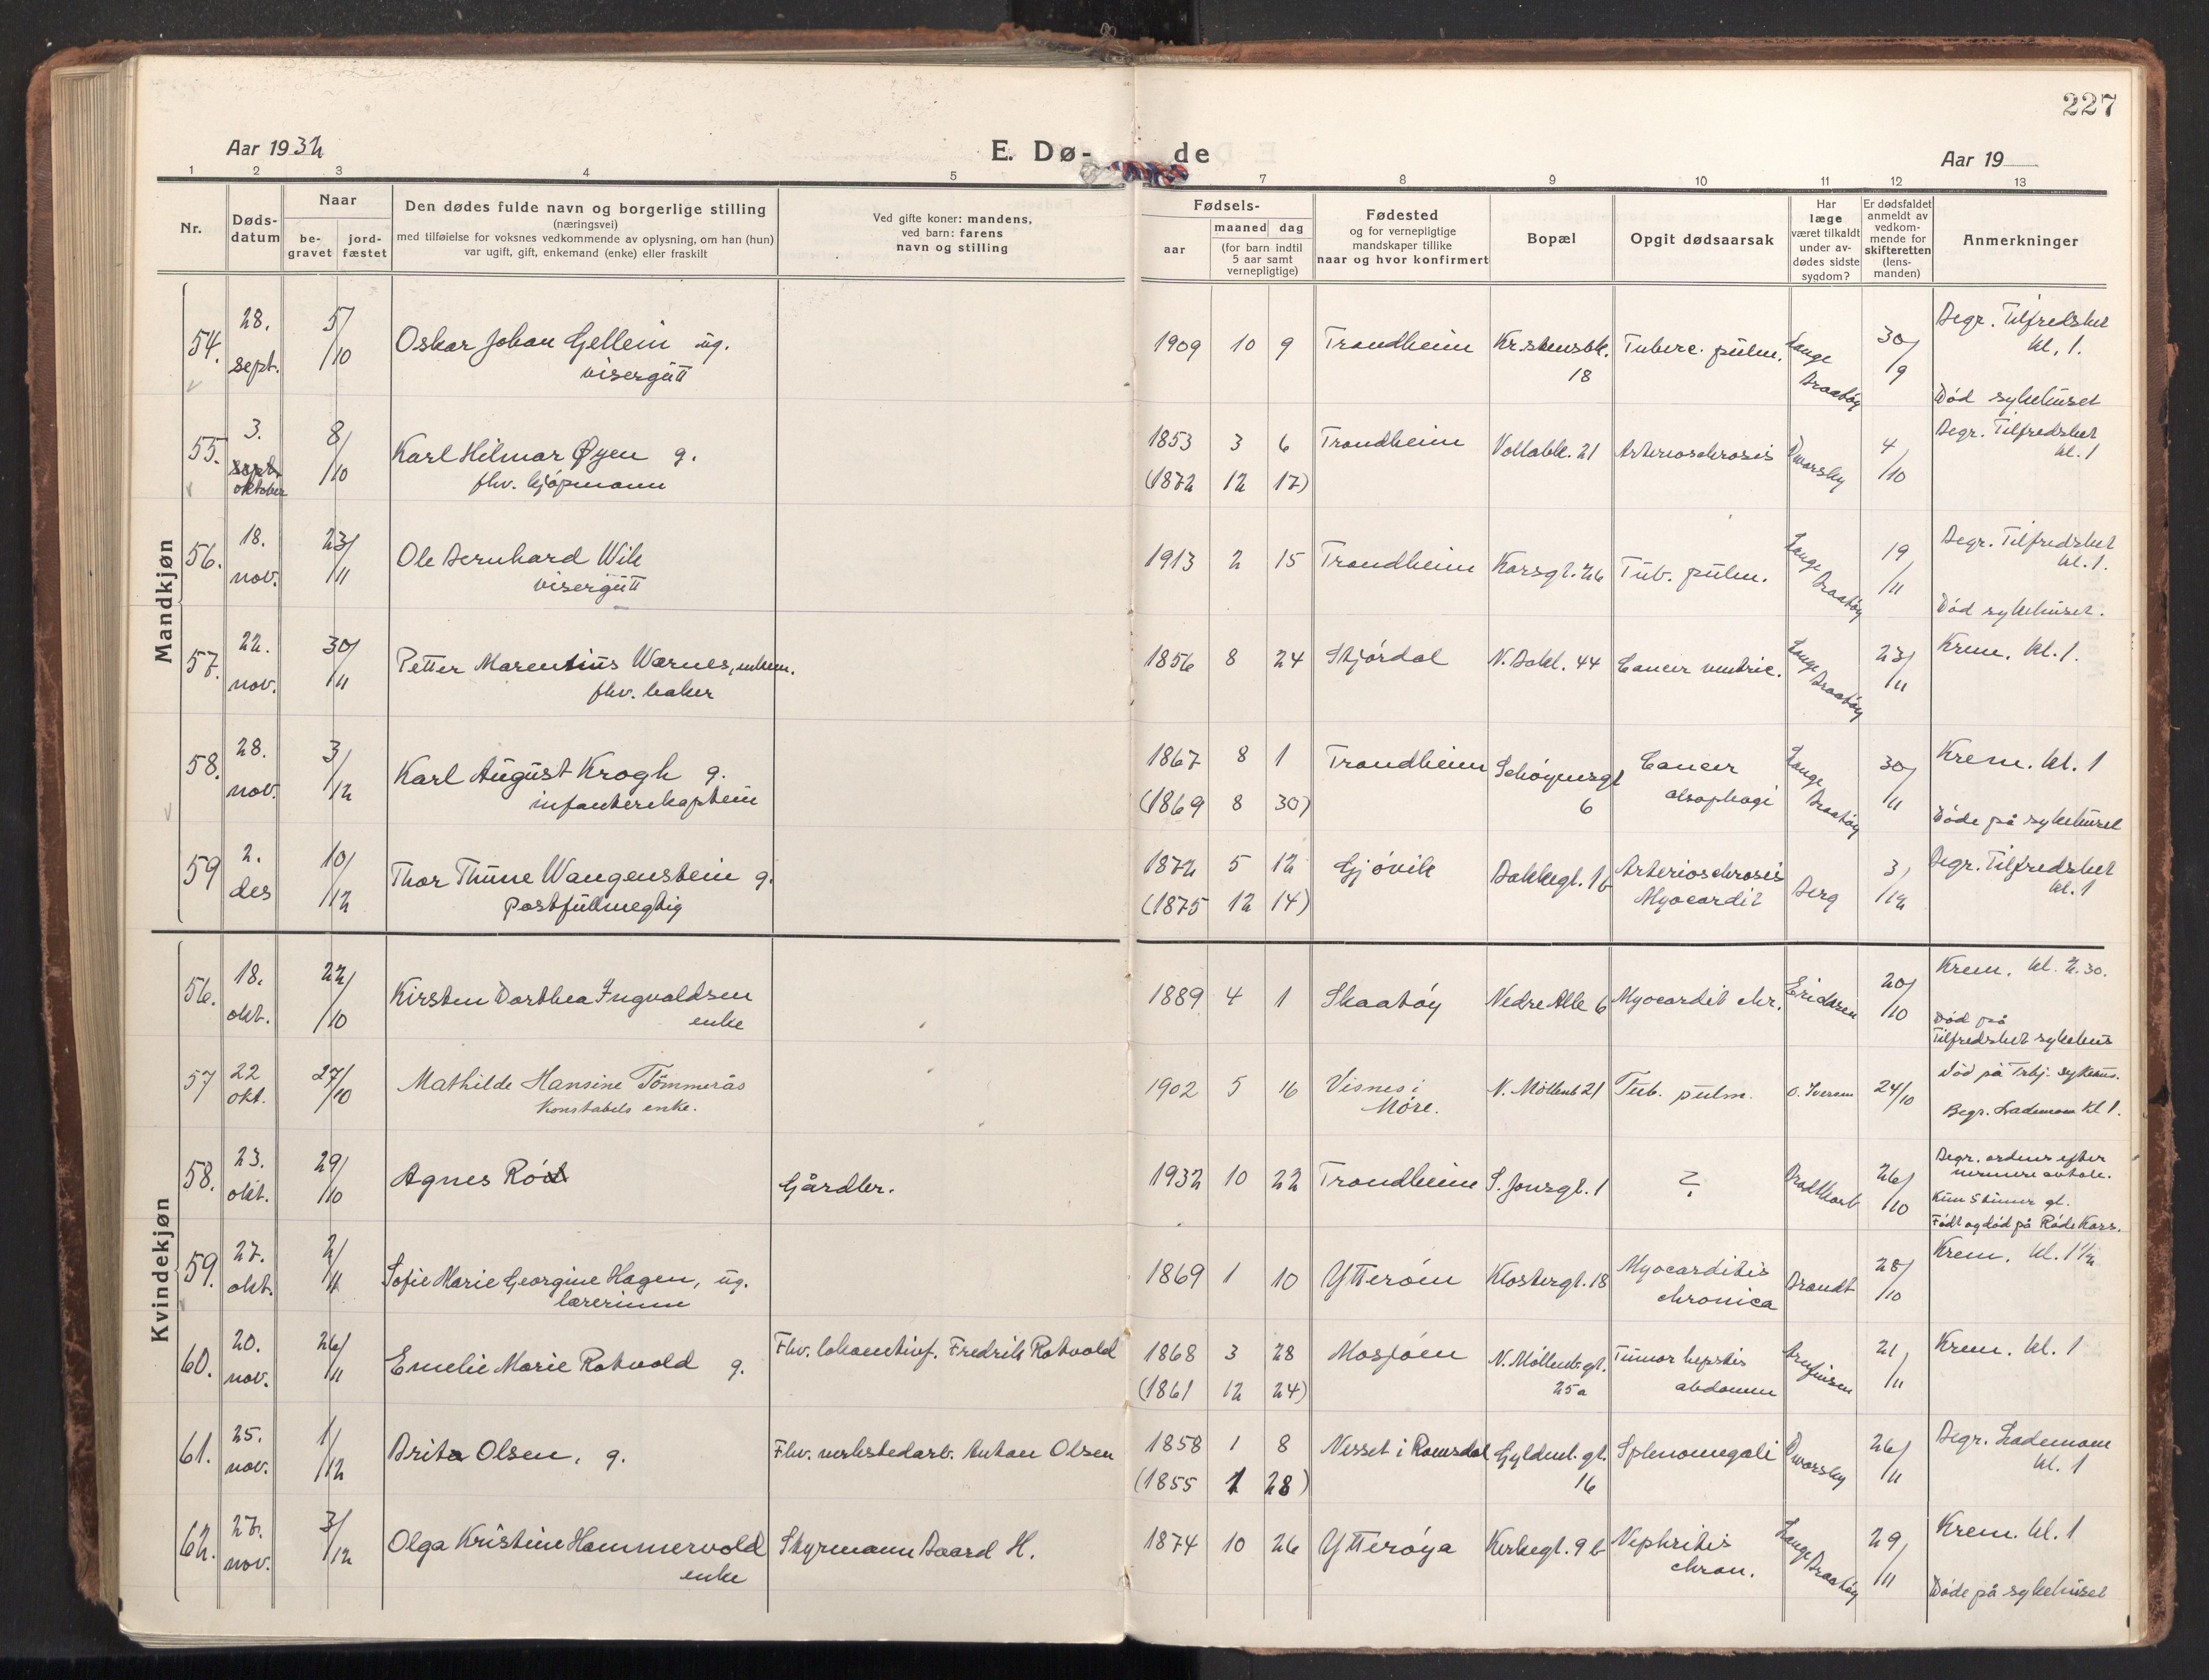 227
Aar 1932
E. Dø-de
Aar 19
1 2 3 4 5 7 8 9 10 11 12 13
Nr.
Døds-datum
Naar
be-gravet
jord-fæstet
Den dødes fulde navn og borgerlige stilling
(næringsvei)
med tilføielse for voksnes vedkommende av oplysning, om han (hun)
var ugift, gift, enkemand (enke) eller fraskilt
Ved gifte koner: mandens,
ved barn: farens
navn og stilling
Fødsels-
aar
maaned dag
(for barn indtil
5 aar samt
vernepligtige)
Fødested
og for vernepligtige
mandskaper tillike
naar og hvor konfirmert
Bopæl
Opgit dødsaarsak
Har
læge
været tilkaldt
under av-
dødes sidste
sygdom?
Er dødsfaldet
anmeldt av
vedkom-
mende for
skifteretten
(lens-
manden)
Anmerkninger
Mandkjøn
54. 28. sept. 5/10 Oskar Johan Gellein ug. 1909 10 9 Trondheim Kr.stensbk. 18 Tuberc. pulm. Lange Braatøy 30/9 Begr. Tilfredshet kl. 1.
visergutt
Død sykehuset
55. 3. sept. oktober 8/10 Karl Hilmar Øyen g. 1853 3 6 Trondheim Vollabk. 21 Arteriosclerosis Dworsky 4/10 Begr. Tilfredshet kl. 1
fhv. kjøpmann (1872 12 17)
56. 18. nov. 23/11 Ole Bernhard Wik 1913 2 15 Trondheim Korsgt. 26 Tub. pulm. Lange Braatøy 19/11 Begr. Tilfredshet kl. 1.
visergutt
Død sykehuset.
57. 22. nov. 30/11 Petter Marentius Wærnes, enkem. 1856 8 24 Stjørdal N. Bakl. 44 Cancer ventric. Lange Braatøy 23/11 Krem. kl. 1.
fhv. baker
58. 28. nov. 3/12 Karl August Krogh g. 1867 8 1 Trondheim Schøyensgt 6 Cancer oesophagi Lange Braatøy 30/11 Krem. kl. 1
infanterikaptein (1869 8 30)
Døde på sykehuset
59 2. des 10/12 Thor Thune Wangenstein g. 1872 5 12 Gjøvik Bakkegt. 1b Arteriosclerosis Myocardit Berg 3/12 Begr. Tilfredshet kl. 1
Postfullmegtig (1875 12 14)
Kvindekjøn
56. 18. okt. 22/10 Kirsten Dorthea Ingvaldsen 1889 4 1 Skaatøy Nedre Alle 6 Myocardit chr. Eriksen 20/10 Krem. kl. 2.30.
enke
Død på
Tilfredshet sykehus
57 22 okt. 27/10 Mathilde Hansine Tømmerås 1902 5 16 Visnes i Møre. N. Møllenb 21 Tub. pulm. O. Iversen 24/10 Død på Trhj. sykehus.
Konstabels enke.
Begr. Lademoen kl 1.
58. 23. okt. 29/10 Agnes Rø Gårdbr. 1932 10 22 Trondheim S. Jonsgt. 1 ? 26/10 Begr. ordnes efter
nermere avtale.
Kun 5 timer gl.
Født og død på Røde Kors.
59. 27. okt. 2/11 Sofie Marie Georgine Hagen, ug. 1869 1 10 Ytterøen Klostergt. 18 Myocarditis chronica Brandt 28/10 Krem. kl. 1 1/2
lærerinne
60. 20. nov. 26/11 Emelie Marie Rotvold g. Fhv. lokomtivf. Fredrik Rotvold 1868 3 28 Mosjøen N. Møllenb gt. 25a Tumor hepatis abdomen 21/11 Krem. kl. 1
(1861 12 24)
61. 25. nov. 1/12 Brita Olsen, g. Fhv. verkstedarb. Anton Olsen 1858 1 8 Nesset i Romsdal Gyldenl. gt. 16 Splenomegali Dworsky 26/11 Begr. Lademoen kl. 1
(1855 1 28)
62. 27. nov. 3/12 Olga Kristine Hammervold Styrmann Baard H. 1874 10 26 Ytterøya Kirkegt. 9b Nephritis chron. Lange Braatøy 29/11 Krem. kl. 1
enke
Døde på sykehuset